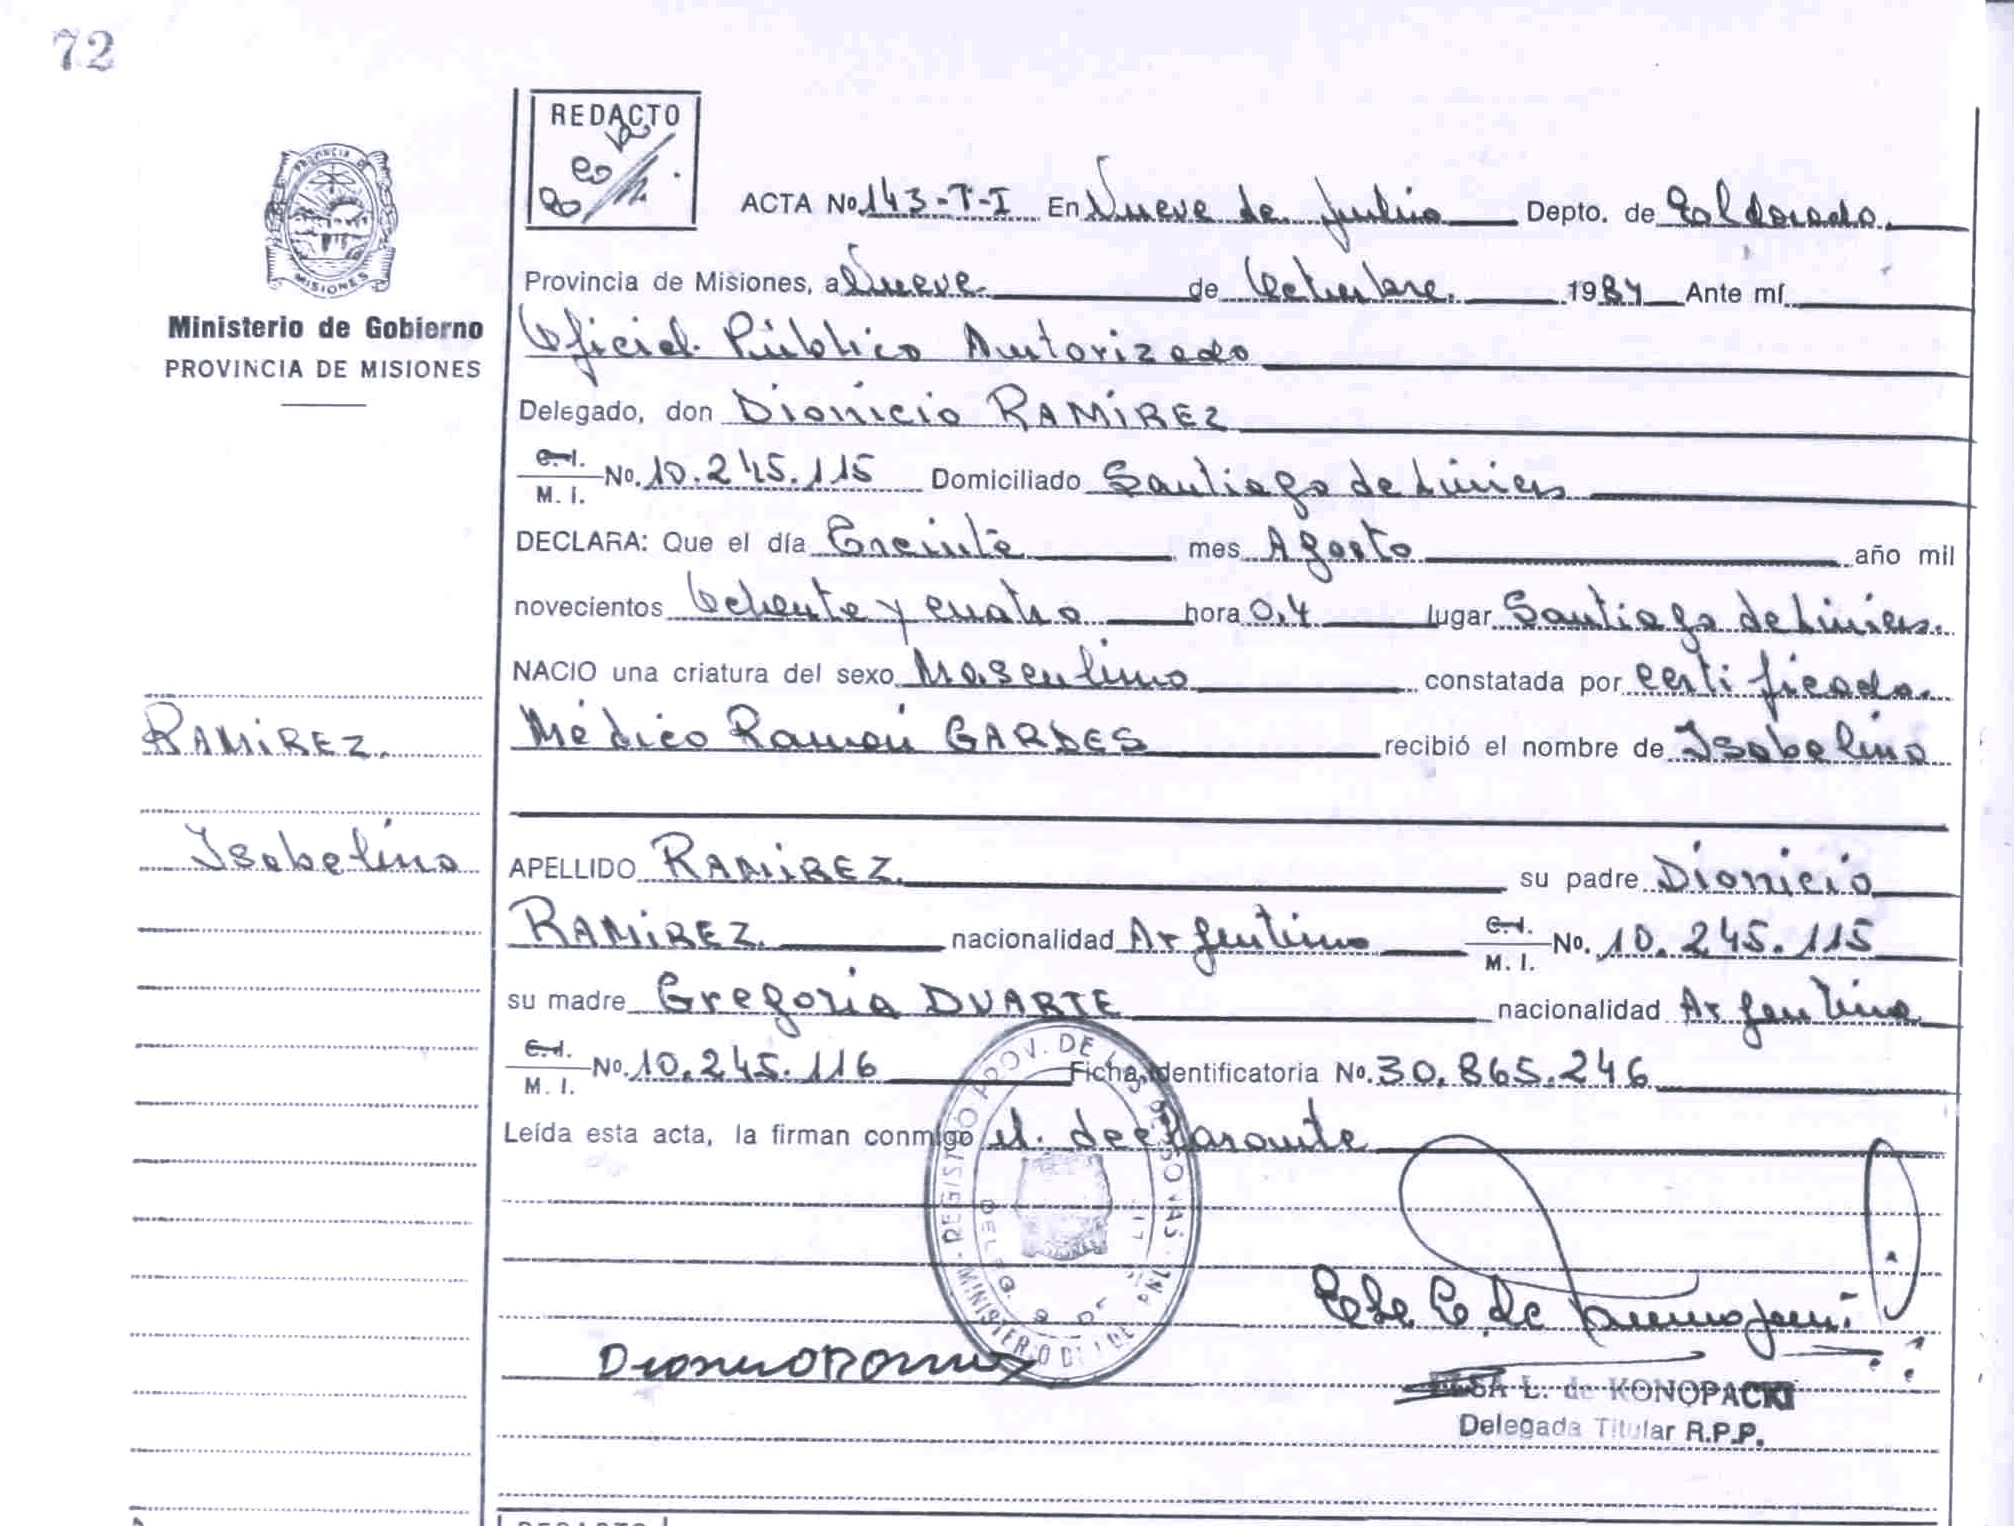 72
REDACTO
PROVINCIA DE
MISIONES
Ministerio de Gobierno
PROVINCIA DE MISIONES
RAMIREZ.
Isabelino
ACTA No. 143-T-I En Nueve de Julio Depto. de Eldorado.
Provincia de Misiones, a Nueve de Octubre. 1984 Ante mí
Oficial Público Autorizado
Delegado, don Dionicio RAMIREZ
C.I. M.I. No. 10.245.115 Domiciliado Santiago de Liniers
DECLARA: Que el día Treinta mes Agosto año mil
novecientos Ochenta y cuatro hora 0,4 lugar Santiago de Liniers.
NACIO una criatura del sexo Masculino constatada por certificado
Médico Ramón GARDES recibió el nombre de Isabelino
APELLIDO RAMIREZ su padre Dionicio
RAMIREZ nacionalidad Argentino C.I. M.I. No. 10.245.115
su madre Gregoria DUARTE nacionalidad Argentina
C.I. M.I. No. 10.245.116 Ficha identificatoria No. 30.865.246
Leída esta acta, la firman conmigo el declarante
REGISTRO PROV. DE LAS PERSONAS
L. de KONOPACKI
Delegada Titular R.P.P.